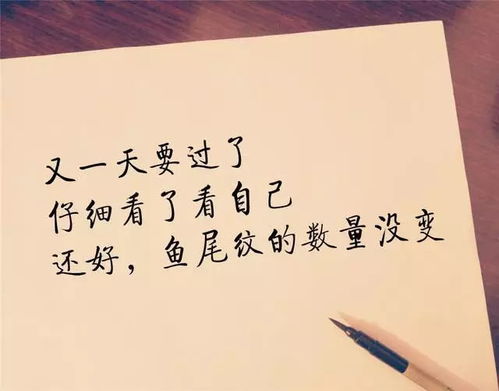 又一天要过了
仔细看了看自己
还好，鱼尾纹的数量没变